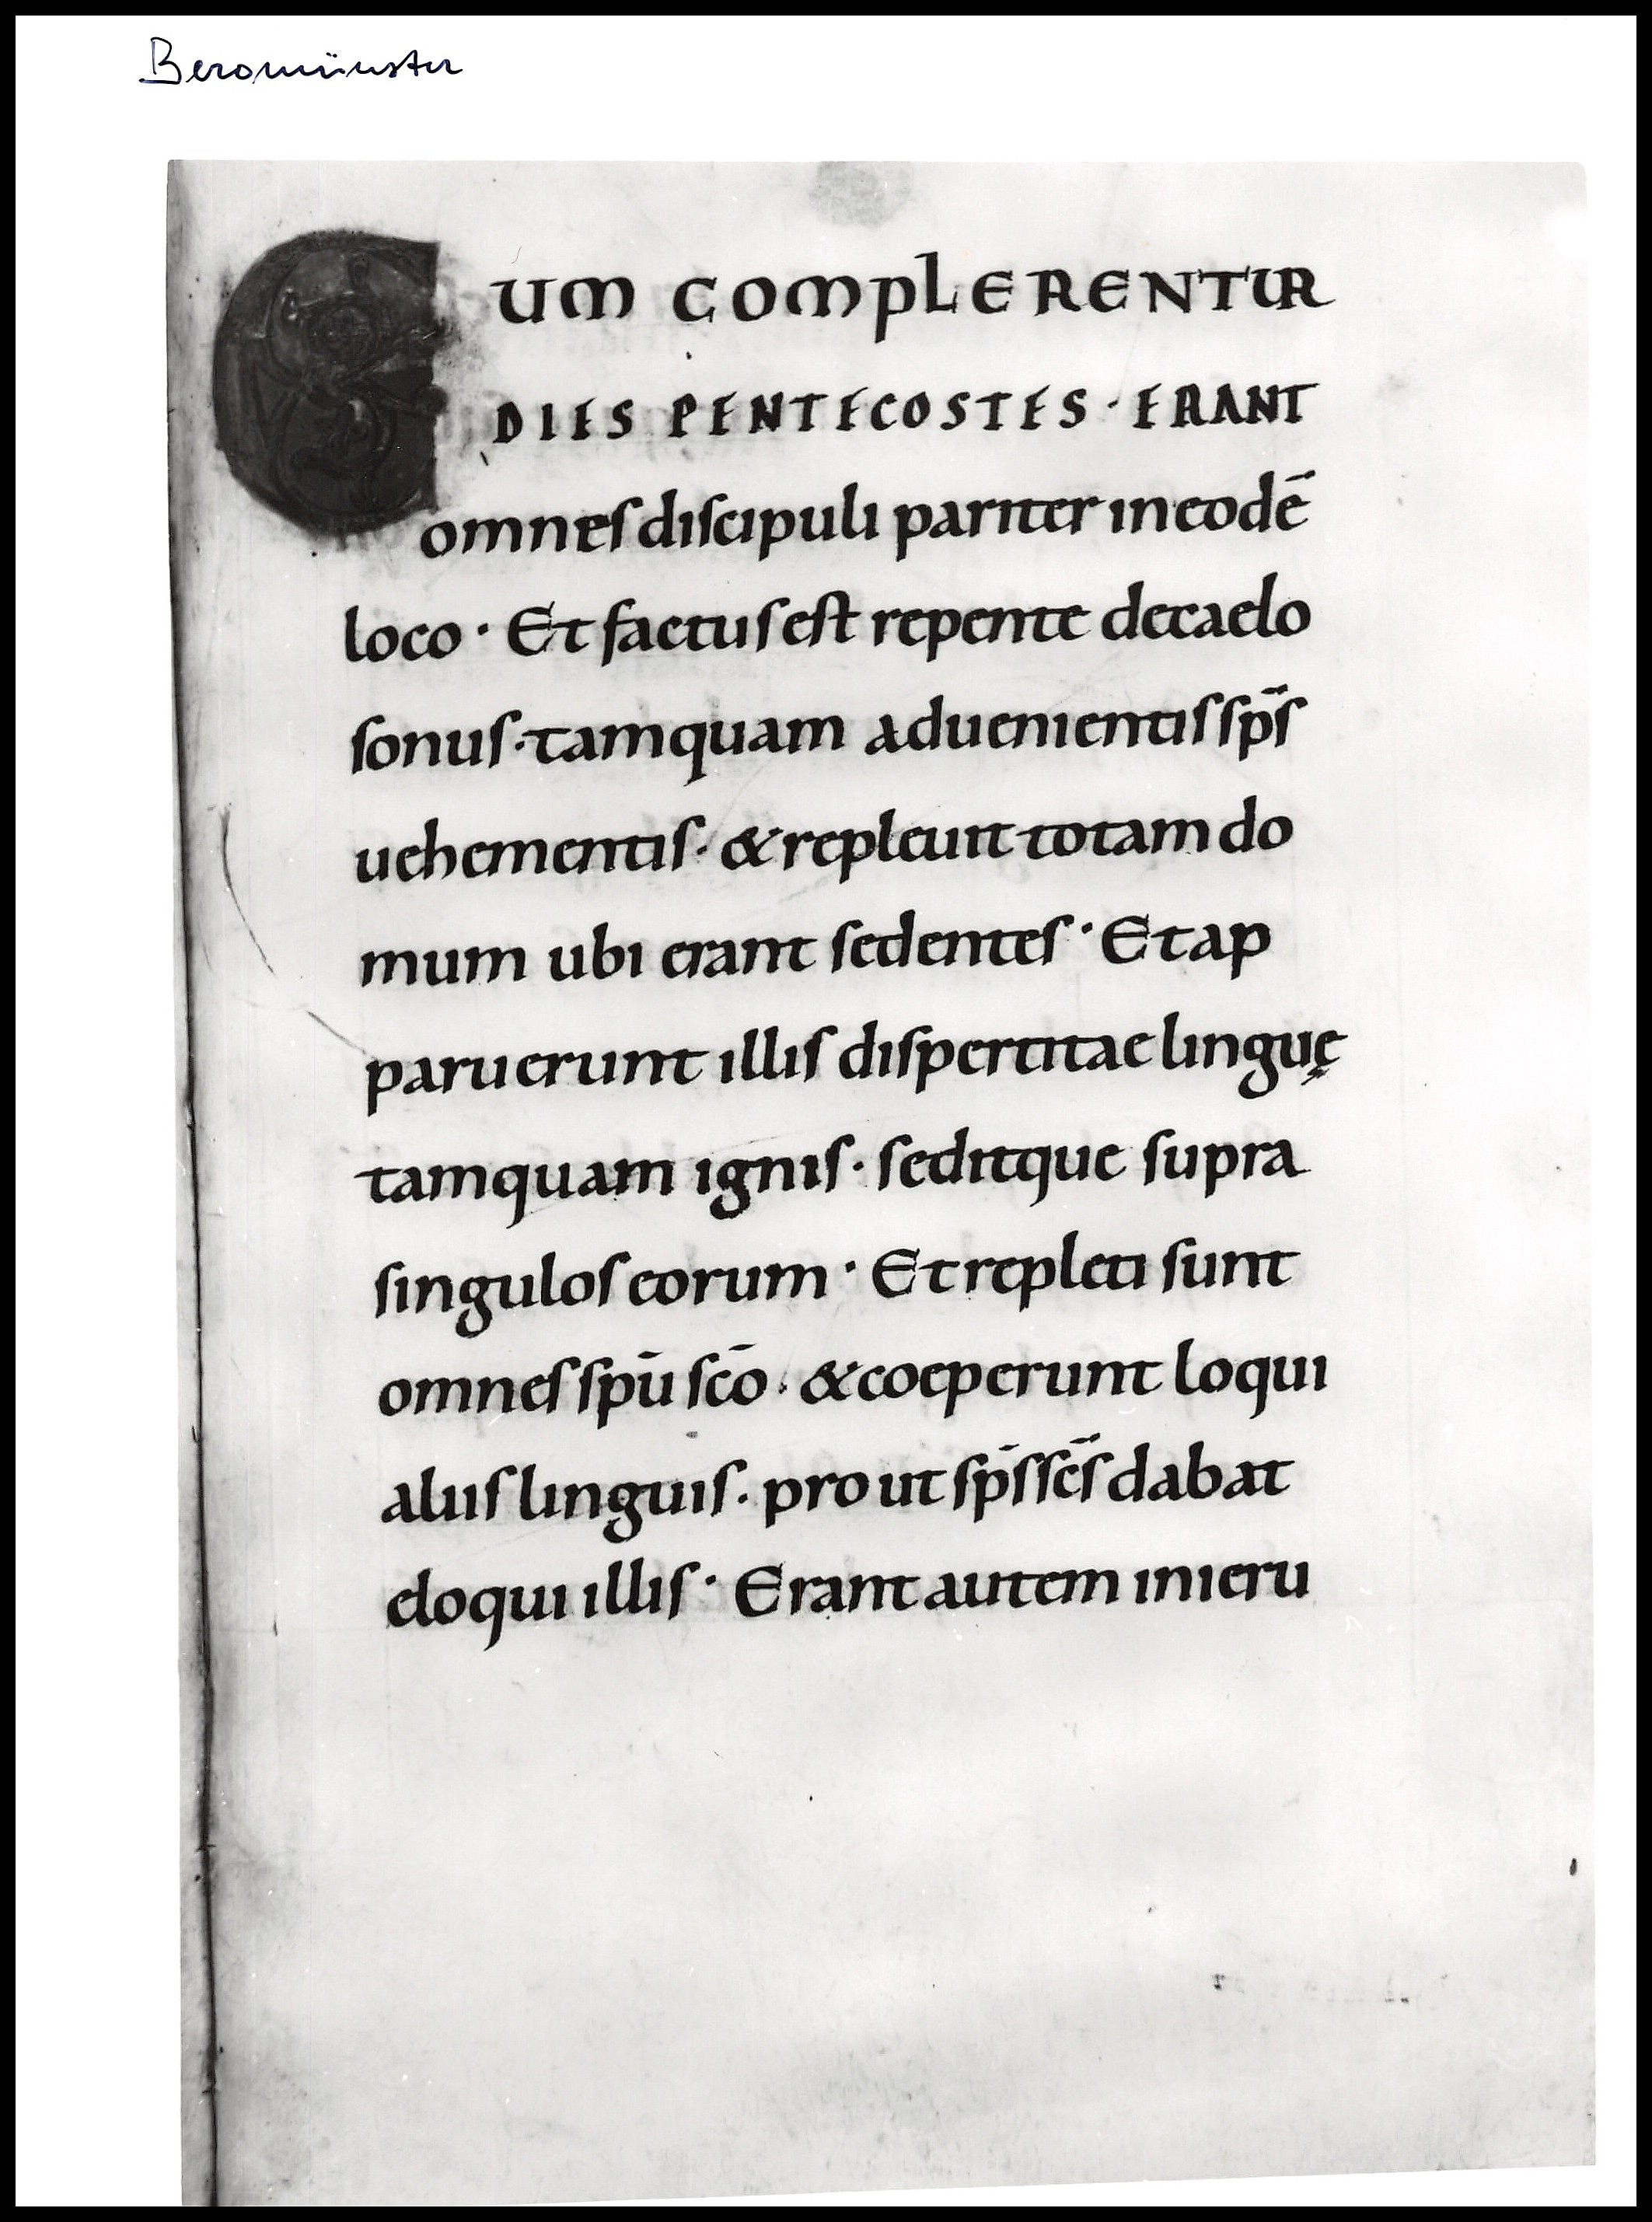 Beromünster
CUM COMPLERENTUR
DIES PENTECOSTES · ERANT
omnes discipuli pariter in eodē
loco · Et factus est repente de caelo
sonus · tamquam aduenientis sp̄s
uehementis · & repleuit totam do
mum ubi erant sedentes · Et ap
paruerunt illis dispertitae linguę
tamquam ignis · seditque supra
singulos eorum · Et repleti sunt
omnes spū scō · & coeperunt loqui
aliis linguis · prout sp̄s sc̄s dabat
eloqui illis · Erant autem in ieru